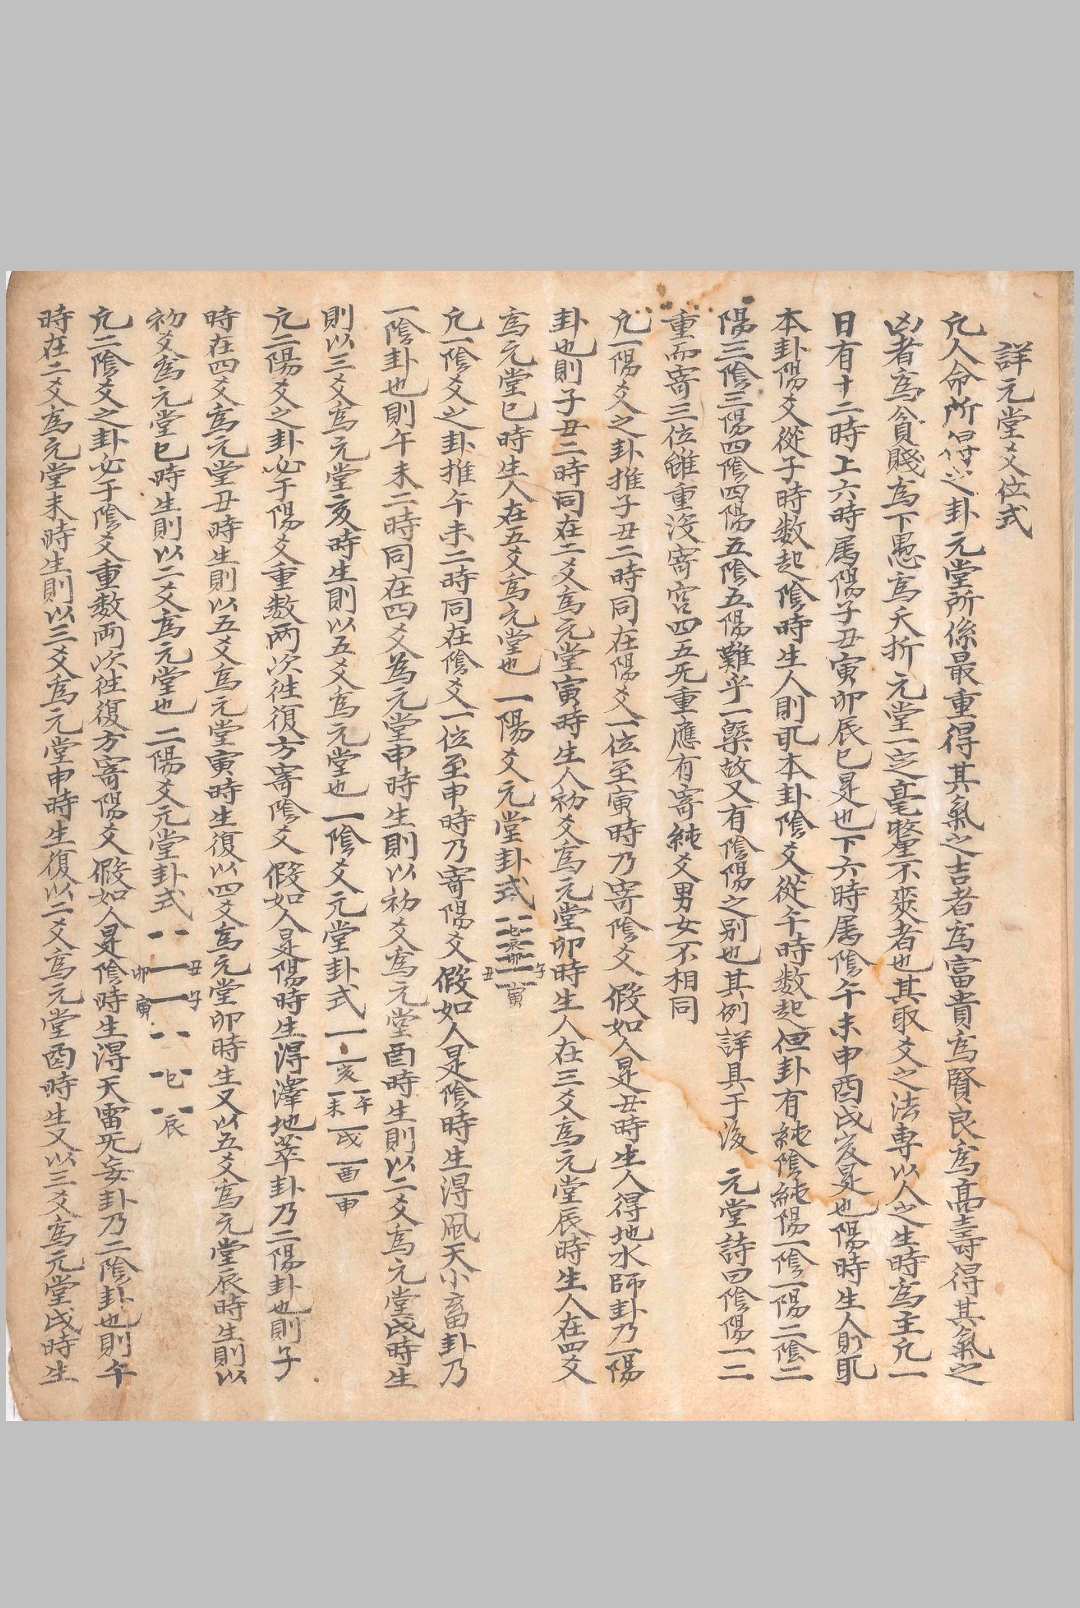 詳元堂爻位式
凢人命所得之卦元堂所係最重得其氣之吉者為富貴為賢良為高壽得其氣之
凶者為貧賤為下愚為夭折元堂一定毫釐不爽者也其取爻之法專以人之生時為主凢一
日有十二時上六時属陽子丑寅卯辰巳是也下六時属陰午未申酉戌亥是也陽時生人則取
本卦陽爻從子時数起陰時生人則取本卦陰爻從午時数起但卦有純陰純陽一陰一陽二陰二
陽三陰三陽四陰四陽五陰五陽難乎一槩故又有陰陽之别也其例詳具于後 元堂詩曰陰陽一二
重而寄三位雖重没寄宫四五旡重應有寄純爻男女不相同
凢一陽爻之卦推子丑二時同在陽爻一位至寅時乃寄陰爻 假如人是丑時生人得地水師卦乃一陽
卦也則子丑二時同在二爻為元堂寅時生人初爻為元堂卯時生人在三爻為元堂辰時生人在四爻
為元堂巳時生人在五爻為元堂也 一陽爻元堂卦式 巳辰卯子丑寅
凢一陰爻之卦推午未二時同在陰爻一位至申時乃寄陽爻 假如人是陰時生淂風天小畜卦乃
一陰卦也則午未二時同在四爻為元堂申時生則以初爻為元堂酉時生則以二爻為元堂戌時生
則以三爻為元堂亥時生則以五爻為元堂也 一陰爻元堂卦式 亥午未戌酉申
凢二陽爻之卦必于陽爻重数两次徃復方寄陰爻 假如人是陽時生淂澤地萃卦乃二陽卦也則子
時在四爻為元堂丑時生則以五爻為元堂寅時生復以四爻為元堂卯時生又以五爻為元堂辰時生則以
初爻為元堂巳時生則以二爻為元堂也 二陽爻元堂卦式 丑卯子寅巳辰
凢二陰爻之卦必于陰爻重数两次徃復方寄陽爻 假如人是陰時生淂天雷旡妄卦乃二陰卦也則午
時在二爻為元堂未時生則以三爻為元堂申時生復以二爻為元堂酉時生又以三爻為元堂戌時生